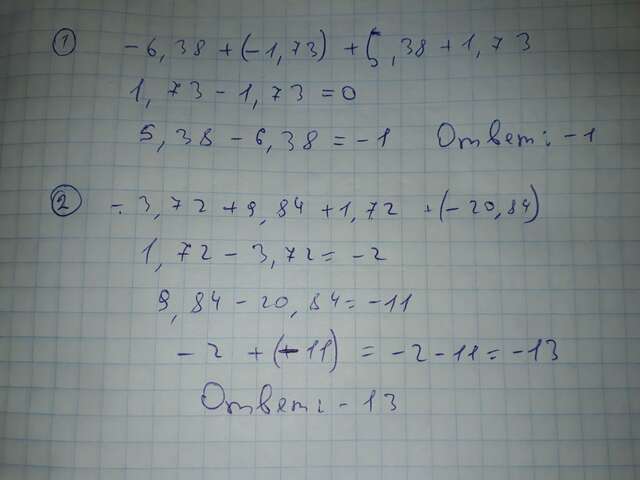 ① -6,38 + (-1,73) + 5,38 + 1,73
1,73 - 1,73 = 0
5,38 - 6,38 = -1 Ответ: -1
② -3,72 + 9,84 + 1,72 + (-20,84)
1,72 - 3,72 = -2
9,84 - 20,84 = -11
-2 + (-11) = -2 - 11 = -13
Ответ: -13